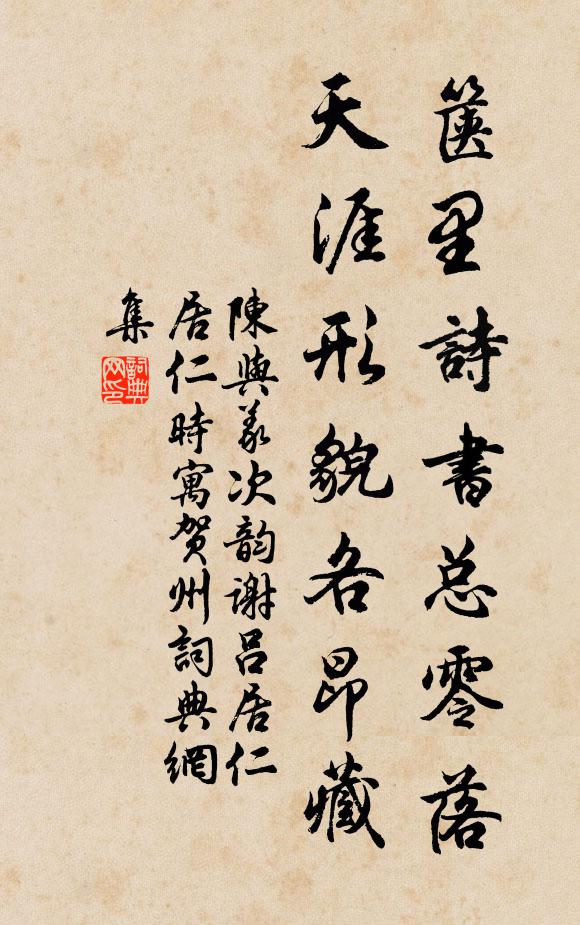 篋里詩書总零落
天涯形貌各昂藏
陳與義次韵谢吕居仁
居仁時寓贺州詞典網
集
詞典
网印